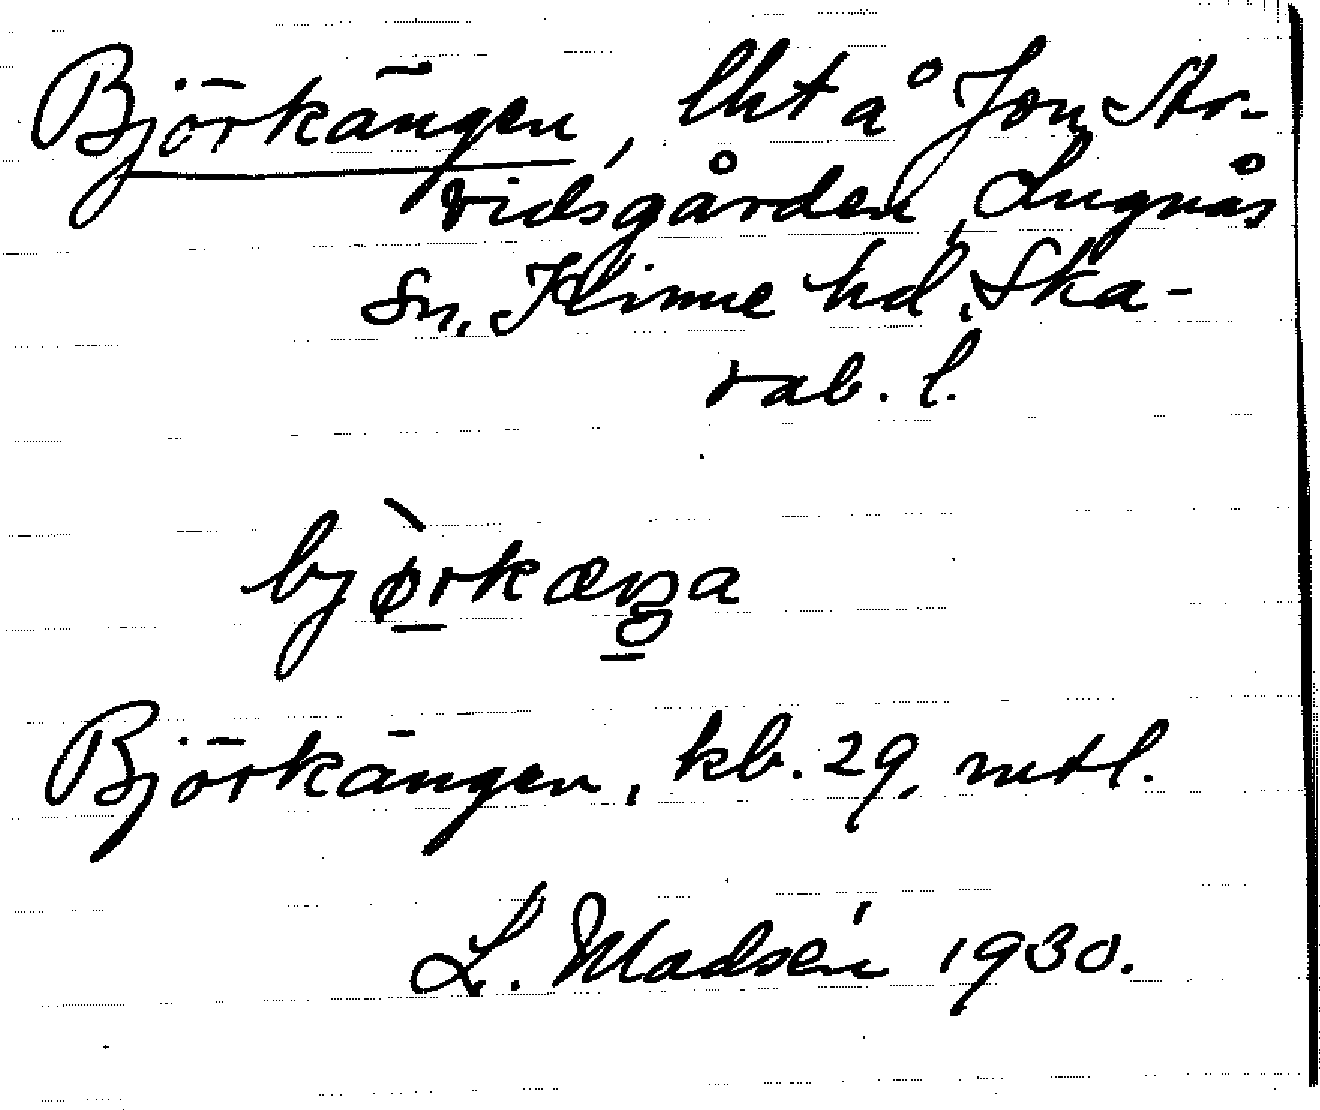 Björkängen, lht å Jon Ar-
vidsgården, Lugnås
Sn, Kinne hd, Ska-
rab. l.
bjø̀rkæŋa
Björkängen, kb. 29, mtl.
L. Madsén 1930.